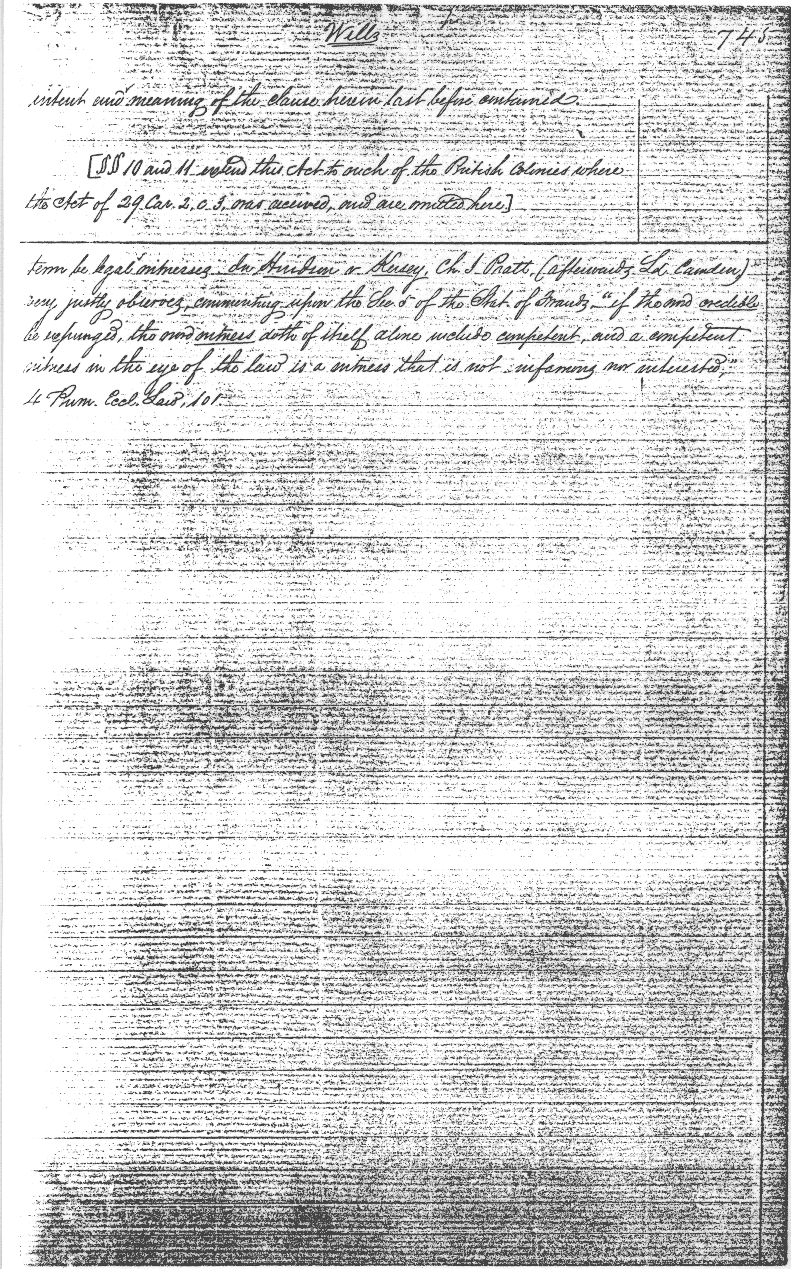 Wills
745
intent and meaning of the clause herein last before contained.
[§§ 10 and 11 extend this Act to such of the British Colonies where
the Act of 29 Car. 2, c. 3, was received, and are omitted here]
term be legal witnesses. In Hindson v. Kersey, Ch. J. Pratt, (afterwards Ld. Camden)
very justly observes, commenting upon the Sec. 5 of the Stat. of Frauds, "if the word credible
be expunged, the word witness doth of itself alone include competent, and a competent
witness in the eye of the law is a witness that is not infamous nor interested,"
4 Burn. Eccl. Law, 101